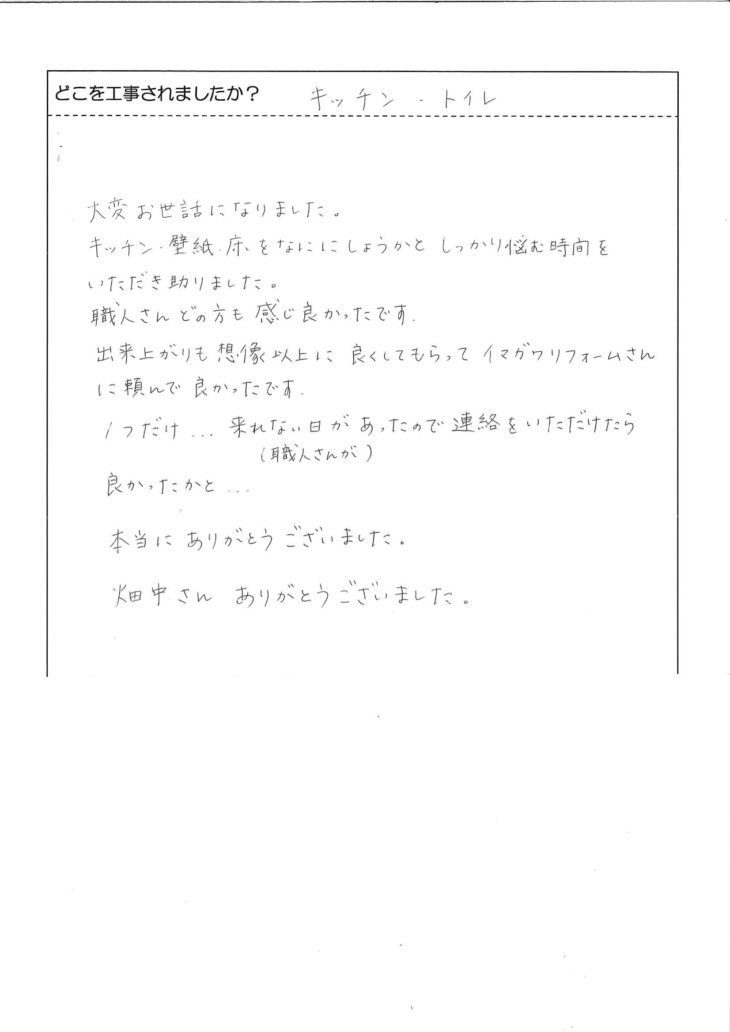 どこを工事されましたか？ キッチン・トイレ
大変お世話になりました。
キッチン・壁紙・床をなににしょうかと しっかり悩む時間を
いただき助りました。
職人さんどの方も感じ良かったです.
出来上がりも想像以上に良くしてもらって イマガワリフォームさん
に頼んで良かったです.
1つだけ... 来れない日があったので連絡をいただけたら
(職人さんが)
良かったかと...
本当にありがとうございました。
畑中さん ありがとうございました。